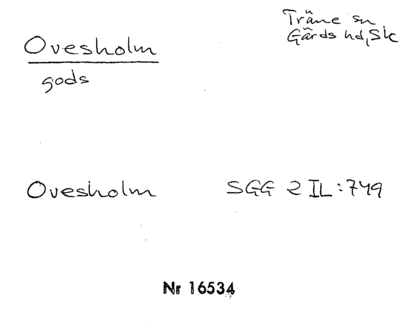 Ovesholm
gods
Träne sn
Gärds hd, Sk
Ovesholm SGG 2 IL:749
Nr 16534